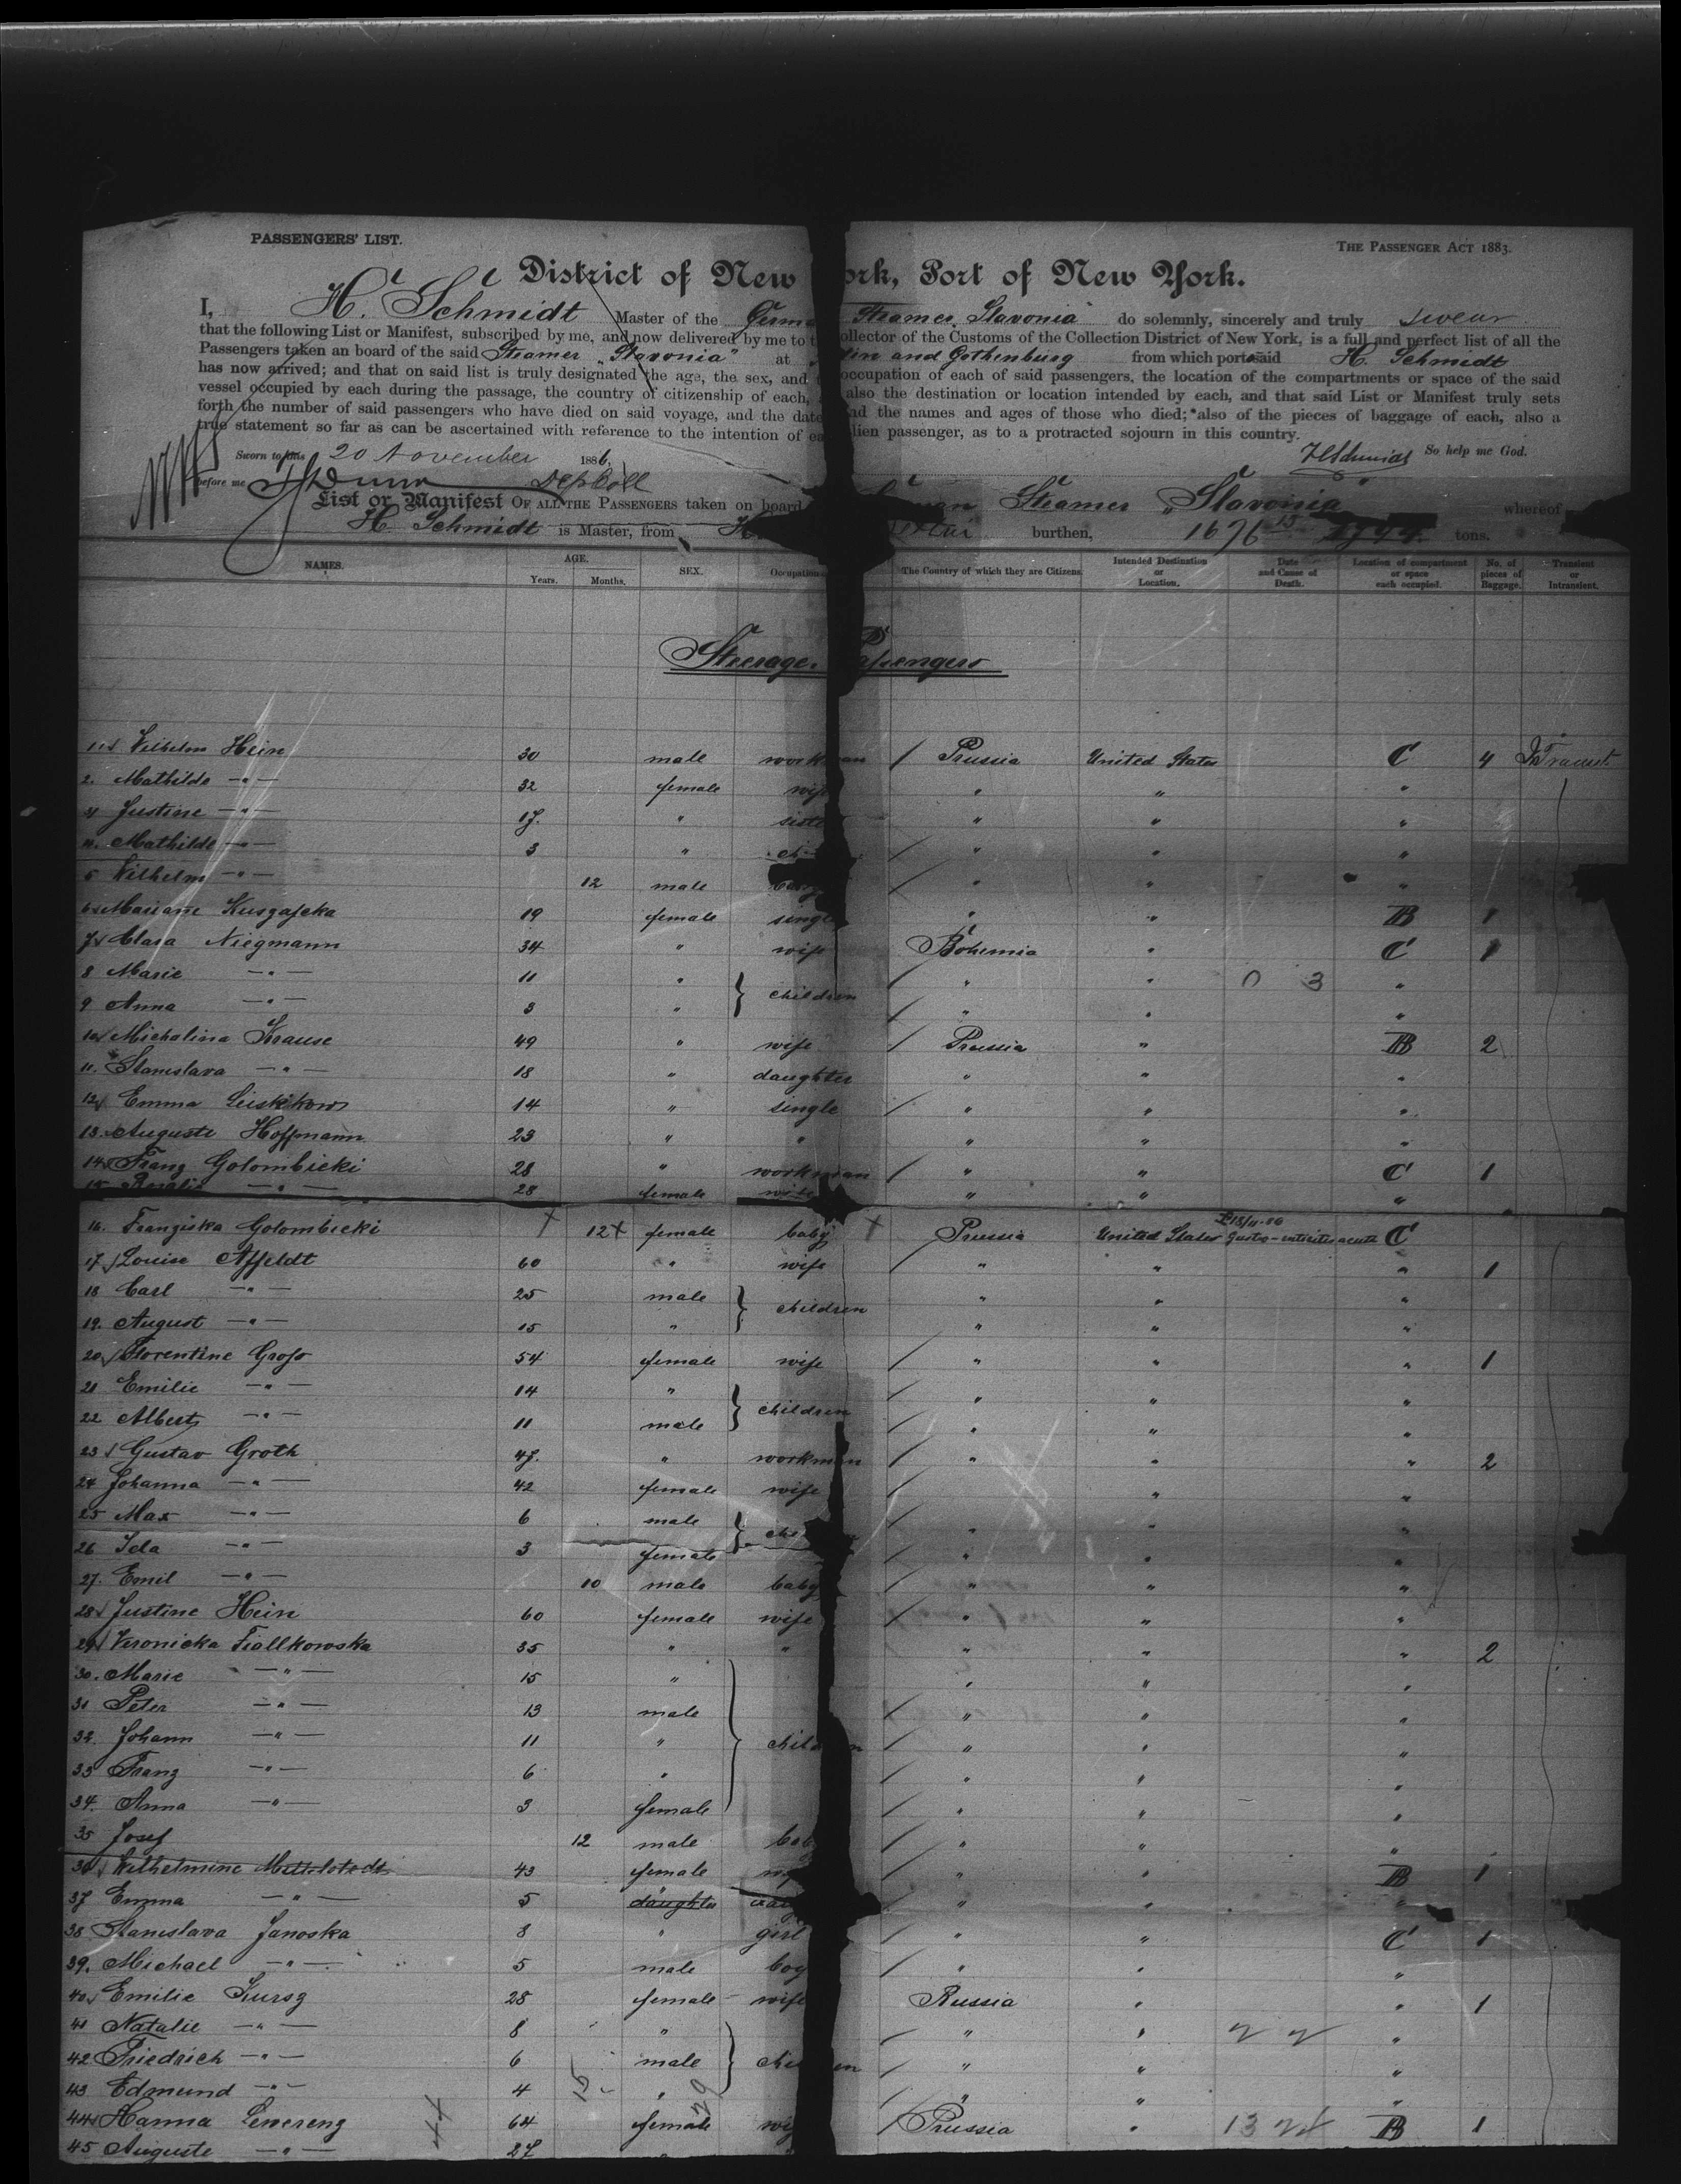 PASSENGERS' LIST.
THE PASSENGER ACT 1883.
District of New York, Port of New York.
I, H. Schmidt Master of the Germa Steamer Slavonia do solemnly, sincerely and truly swear
that the following List or Manifest, subscribed by me, and now delivered by me to t ollector of the Customs of the Collection District of New York, is a full and perfect list of all the
Passengers taken an board of the said Steamer "Slavonia" at tin and Gothenburg from which port said H. Schmidt
has now arrived; and that on said list is truly designated the age, the sex, and occupation of each of said passengers, the location of the compartments or space of the said
vessel occupied by each during the passage, the country of citizenship of each, also the destination or location intended by each, and that said List or Manifest truly sets
forth the number of said passengers who have died on said voyage, and the date nd the names and ages of those who died; also of the pieces of baggage of each, also a
true statement so far as can be ascertained with reference to the intention of ea lien passenger, as to a protracted sojourn in this country.
Sworn to this 20 November 1886, HSchmidt So help me God.
before me Dep Coll
List or Manifest OF ALL THE PASSENGERS taken on board Steamer "Slavonia" whereof
H. Schmidt is Master, from burthen, 1676 tons.
NAMES. AGE. Years. Months. SEX. Occupation The Country of which they are Citizens. Intended Destination or Location. Date and Cause of Death. Location of compartment or space each occupied. No. of pieces of Baggage. Transient or Intransient.
Steerage Passengers
1 Wilhelm Hein 30 male workman / Prussia United States C 4 In Transit
2. Mathilde -"- 32 female wife " " "
3 Justine -"- 17. " siste " " "
4. Mathilde -"- 3 " ch / " " "
5 Wilhelm -"- 12 male / " " "
6 Mariane Kuszajcka 19 female single " " B 1
7 Clara Niegmann 34 " wife Bohemia " C 1
8 Marie -"- 11 " } children / " " 0 3 "
9 Anna -"- 3 " / " " "
10 Michalina Krause 49 " wife / Prussia " B 2
11. Stanislava -"- 18 " daughter " " "
12 Emma Lüskikow 14 " single / " " "
13. Auguste Hoffmann 23 " " " " "
14 Franz Golombicki 28 " workman / " " C 1
15 Rosalie -"- 28 female wife " " "
16. Franziska Golombicki 12 female baby Prussia United States C
17 Louise Affeldt 60 " wife / " " " 1
18 Carl -"- 25 male } children " " "
19. August -"- 15 " " " "
20 Florentine Groß 54 female wife / " " " 1
21 Emilie -"- 14 " } children / " " "
22 Albert -"- 11 male / " " "
23 Gustav Groth 47. " workman / " " " 2
24 Johanna -"- 42 female wife / " " "
25 Max -"- 6 male } chi / " " "
26 Ida -"- 3 female / " " "
27. Emil -"- 10 male baby / " " "
28 Justine Hein 60 female wife / " " "
29 Veronicka Fiallkowska 35 " " " " " 2
30. Marie -"- 15 " " " "
31 Peter -"- 13 male / " " "
32. Johann -"- 11 " } children / " " "
33 Franz -"- 6 " / " " "
34. Anna -"- 3 female / " " "
35 Josef 12 male bab / " " "
36 Wilhelmine 43 female / " " B 1
37 Emma -"- 5 daughter / " "
38 Stanislava Janoska 8 " girl / " " C 1
39. Michael -"- 5 male boy / " " "
40 Emilie Kursz 28 female wife Russia " " 1
41 Natalie -"- 8 " / " " "
42 Friedrich -"- 6 male } children / " " "
43 Edmund -"- 4 " / " " "
44 Hanna Leverenz 64 female wi / Prussia " B 1
45 Auguste -"- 27